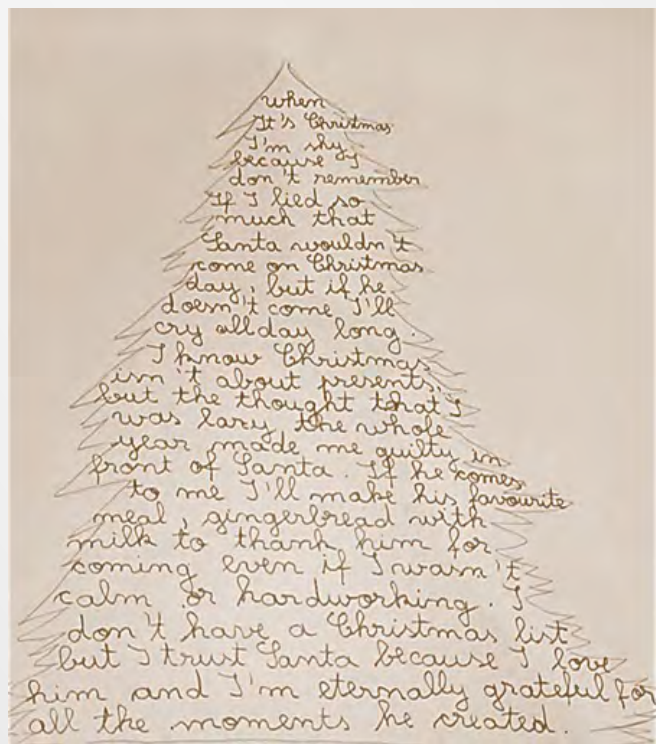 when
It's Christmas
I'm shy
because I
don't remember
If I lied so
much that
Santa wouldn't
come on Christmas
day, but if he
doesn't come I'll
cry all day long.
I know Christmas
isn't about presents,
but the thought that I
was lazy the whole
year made me guilty in
front of Santa. If he comes
to me I'll make his favourite
meal, gingerbread with
milk to thank him for
coming even if I wasn't
calm or hardworking. I
don't have a Christmas list
but I trust Santa because I love
him and I'm eternally grateful for
all the moments he created.